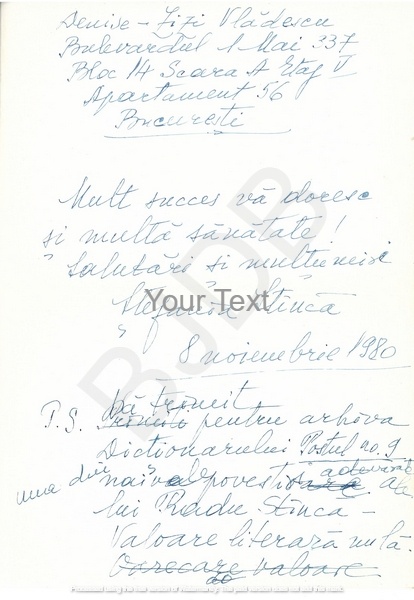 Denise-Zizi Vlădescu
Bulevardul 1 Mai 337
Bloc 14 Scara A Etaj V
Apartament 56
București
Mult succes vă doresc
și multă sănătate!
Salutări și mulțumiri
Ștefania Stincă
Your Text
8 noiembrie 1980
P.S. Vă trimit
pentru arhiva
Dicționarului Postul no. 9
una din naivele povestiri adevărate ale
lui Radu Stîncă –
Valoare literară nulă.
Oarecare valoare
BJDB